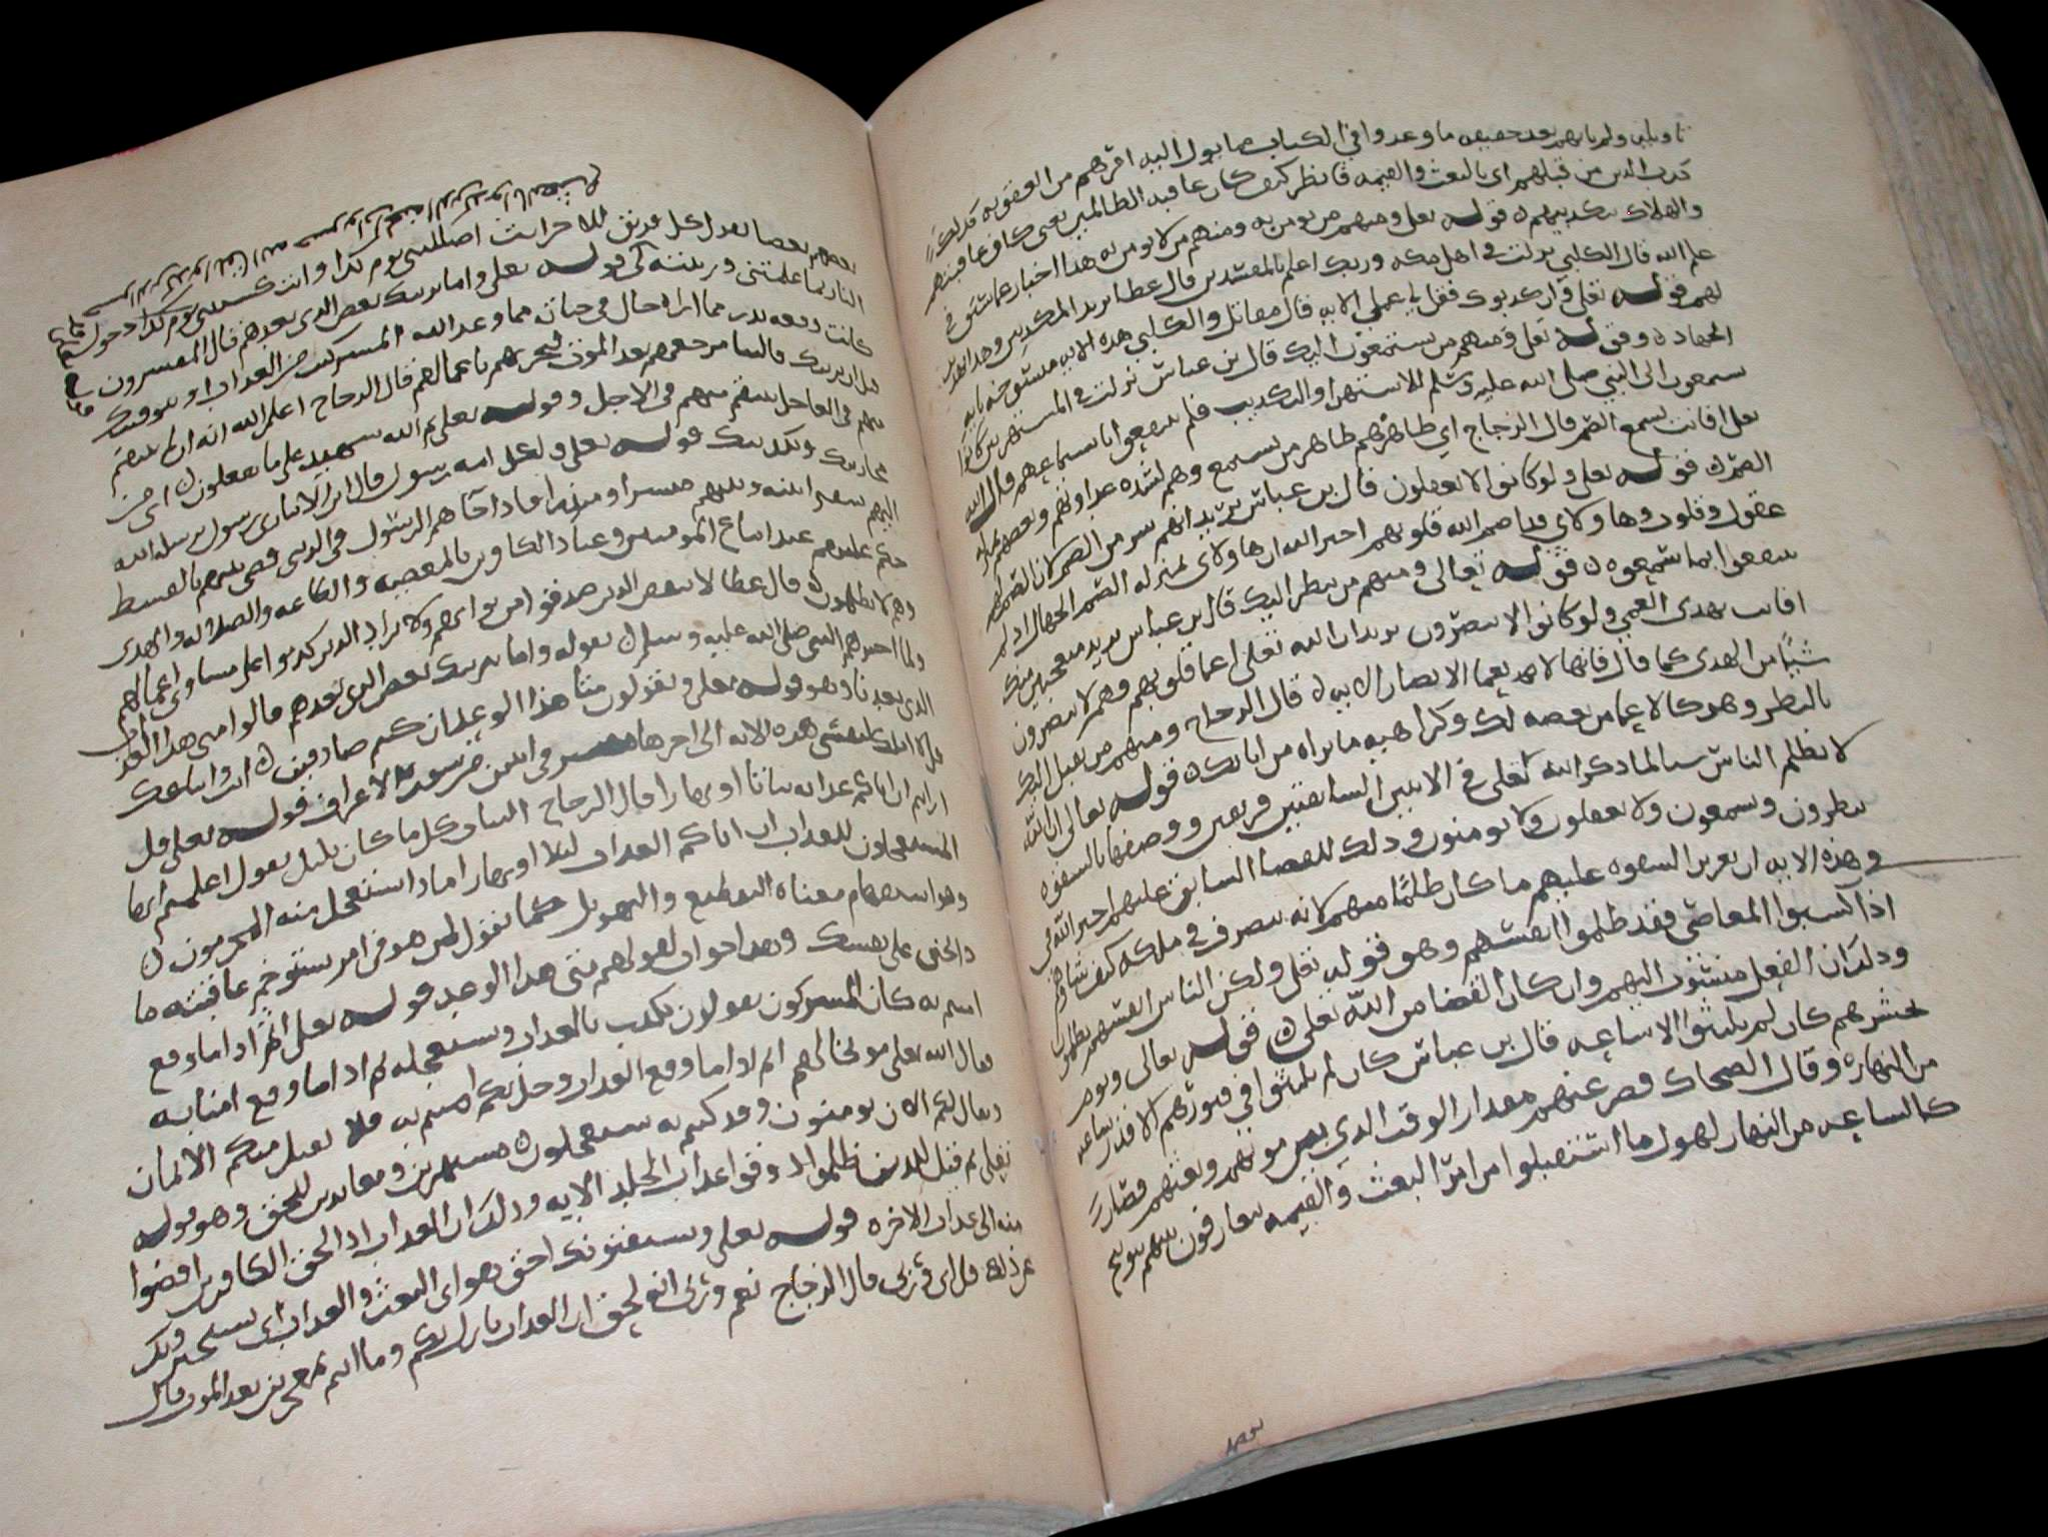 تاويله ولم ياتهم بعد حقيقه ما وعدوا في الكتاب مما يول اليه امرهم من العقوبه كذلك
كذب الذين من قبلهم اي بالبعث والقيمه فانظر كيف كان عاقبه الظالمين يعني كان عاقبتهم
والهلاك بتكذيبهم قوله تعلى ومنهم من يومن به ومنهم من لا يومن به هذا اخبار عما سبق في
علم الله قال الكلبي نزلت في اهل مكه وربك اعلم بالمفسدين قال عطا يريد المكذبين وهذا تهديد
لهم قوله تعلى وان كذبوك فقل لي عملي الايه قال مقاتل والكلبي هذه الايه منسوخه بايه
الجهاد وقوله تعلى ومنهم من يستمعون اليك قال بن عباس نزلت في المستهزين كانوا
يستمعون الى النبي صلى الله عليه وسلم للاستهزا والتكذيب فلم ينتفعوا باستماعهم قال الله
تعلى افانت تسمع الصم قال الزجاج اي ظاهرهم ظاهر من يستمع وهم لشده عداوتهم وبغضهم بمنزله
الصم قوله تعلى ولو كانوا لا يعقلون قال بن عباس يريد انهم شر من الصم لان الصم لهم
عقول وقلوب وهاولاي قد اصم الله قلوبهم اخبر الله ان هاولاي بمنزله الصم الجهال اذ لم
ينتفعوا بما سمعوه قوله تعالى ومنهم من ينظر اليك قال بن عباس يريد متعجبين منك
افانت تهدي العمي ولو كانوا لا يبصرون يريد ان الله تعلى اعما قلوبهم فهم لا يبصرون
شيا من الهدى كما قال فانها لا تعما الابصار الايه قال الزجاج ومنهم من يقبل اليك
بالنظر وهو كالاعما من بغضه لك وكراهيه ما يراه من اياتك قوله تعالى ان الله
لا يظلم الناس شيا لما ذكر الله تعلى في الايتين السابقتين فريقين ووصفهما بالشقوه
ينظرون ويسمعون ولا يعقلون ولا يومنون وذلك للقضا السابق عليهم اخبر الله في
هذه الايه ان تقدير الشقوه عليهم ما كان ظلما منهم لانه يتصرف في ملكه كيف شا وهم
اذا كسبوا المعاصي فقد ظلموا انفسهم وهو قوله تعلى ولكن الناس انفسهم يظلمون
وذلك ان الفعل منسوب اليهم وان كان القضا من الله تعلى قوله تعالى ويوم
نحشرهم كان لم يلبثوا الا ساعه قال بن عباس كان لم يلبثوا في قبورهم الا قدر ساعه
من النهار وقال الضحاك قصر عندهم مقدار الوقت الذي بين موتهم وبعثهم فصار
كالساعه من النهار لهول ما استقبلوا من امر البعث والقيمه يتعارفون بينهم توبيخ
بعضهم
بعضهم بعضا يقول كل فريق للاخر انت اضللتني يوم كذا وانت كسبتني يوم كذا دخول
النار بما علمتني وزينته لي قوله تعلى واما نرينك بعض الذي نعدهم قال المفسرون
كانت وقعه بدر مما اراه حال في حياته مما وعد الله المشركين من العذاب او نتوفينك
قبل ان نرينك فالينا مرجعهم بعد الموت لنجزيهم باعمالهم قال الزجاج اعلم الله انه ان لم ينتقم
منهم في العاجل ينتقم منهم في الاجل وقوله تعلى ثم الله شهيد على ما يفعلون اي من
محاربتك وتكذيبك قوله تعلى ولكل امه رسول قال ابن الانباري رسول يرسله الله
اليهم
حكم عليهم عند اتباع المومنين وعناد الكافرين بالمعصيه والطاعه والضلاله والهدى
وهم لا يظلمون قال عطا لا ينقص الذين صدقوا من ثوابهم ولا يزاد الذين كذبوا على مساوي اعمالهم
ولما اخبرهم النبي صلى الله عليه وسلم بقوله واما نرينك بعض الذي نعدهم قالوا متى هذا العذاب
الذي تعدنا وهو قوله تعلى ويقولون متى هذا الوعد ان كنتم صادقين انت واتباعك
قل لا املك لنفسي هذه الايه الى اخرها مفسر في ايتين من سوره الاعراف قوله تعلى قل
ارايتم ان اتاكم عذابه بياتا او نهارا قال الزجاج البيات كل ما كان بليل يقول اعلمتم اي ها
المستعجلون للعذاب ان اتاكم العذاب ليلا او نهارا ماذا يستعجل منه المجرمون
وهو استفهام معناه التفظيع والتهويل كما تقول لمن هو في امر يستوخم عاقبته ما
ذا تجني على نفسك وهذا جواب لقولهم متى هذا الوعد قوله تعلى اثم اذا ما وقع
امنتم به كان المشركون يقولون نكذب بالعذاب ونستعجله ثم اذا ما وقع امنا به
فقال الله تعلى موبخا لهم اثم اذا ما وقع العذاب وحل بكم امنتم به فلا يقبل منكم الايمان
ويقال لكم الان تومنون وقد كنتم به تستعجلون مستهزين ومعاندين للحق وهو قوله
تعلى ثم قيل للذين ظلموا ذوقوا عذاب الخلد الايه وذلك ان العذاب اذا لحق الكافرين افضوا
منه الى عذاب الاخره قوله تعلى ويستنبونك احق هو اي البعث والعذاب اي يستخبرونك
عن ذلك قل اي وربي قال الزجاج نعم وربي انه لحق ان العذاب نازل بكم وما انتم بمعجزين بعد الموت قال